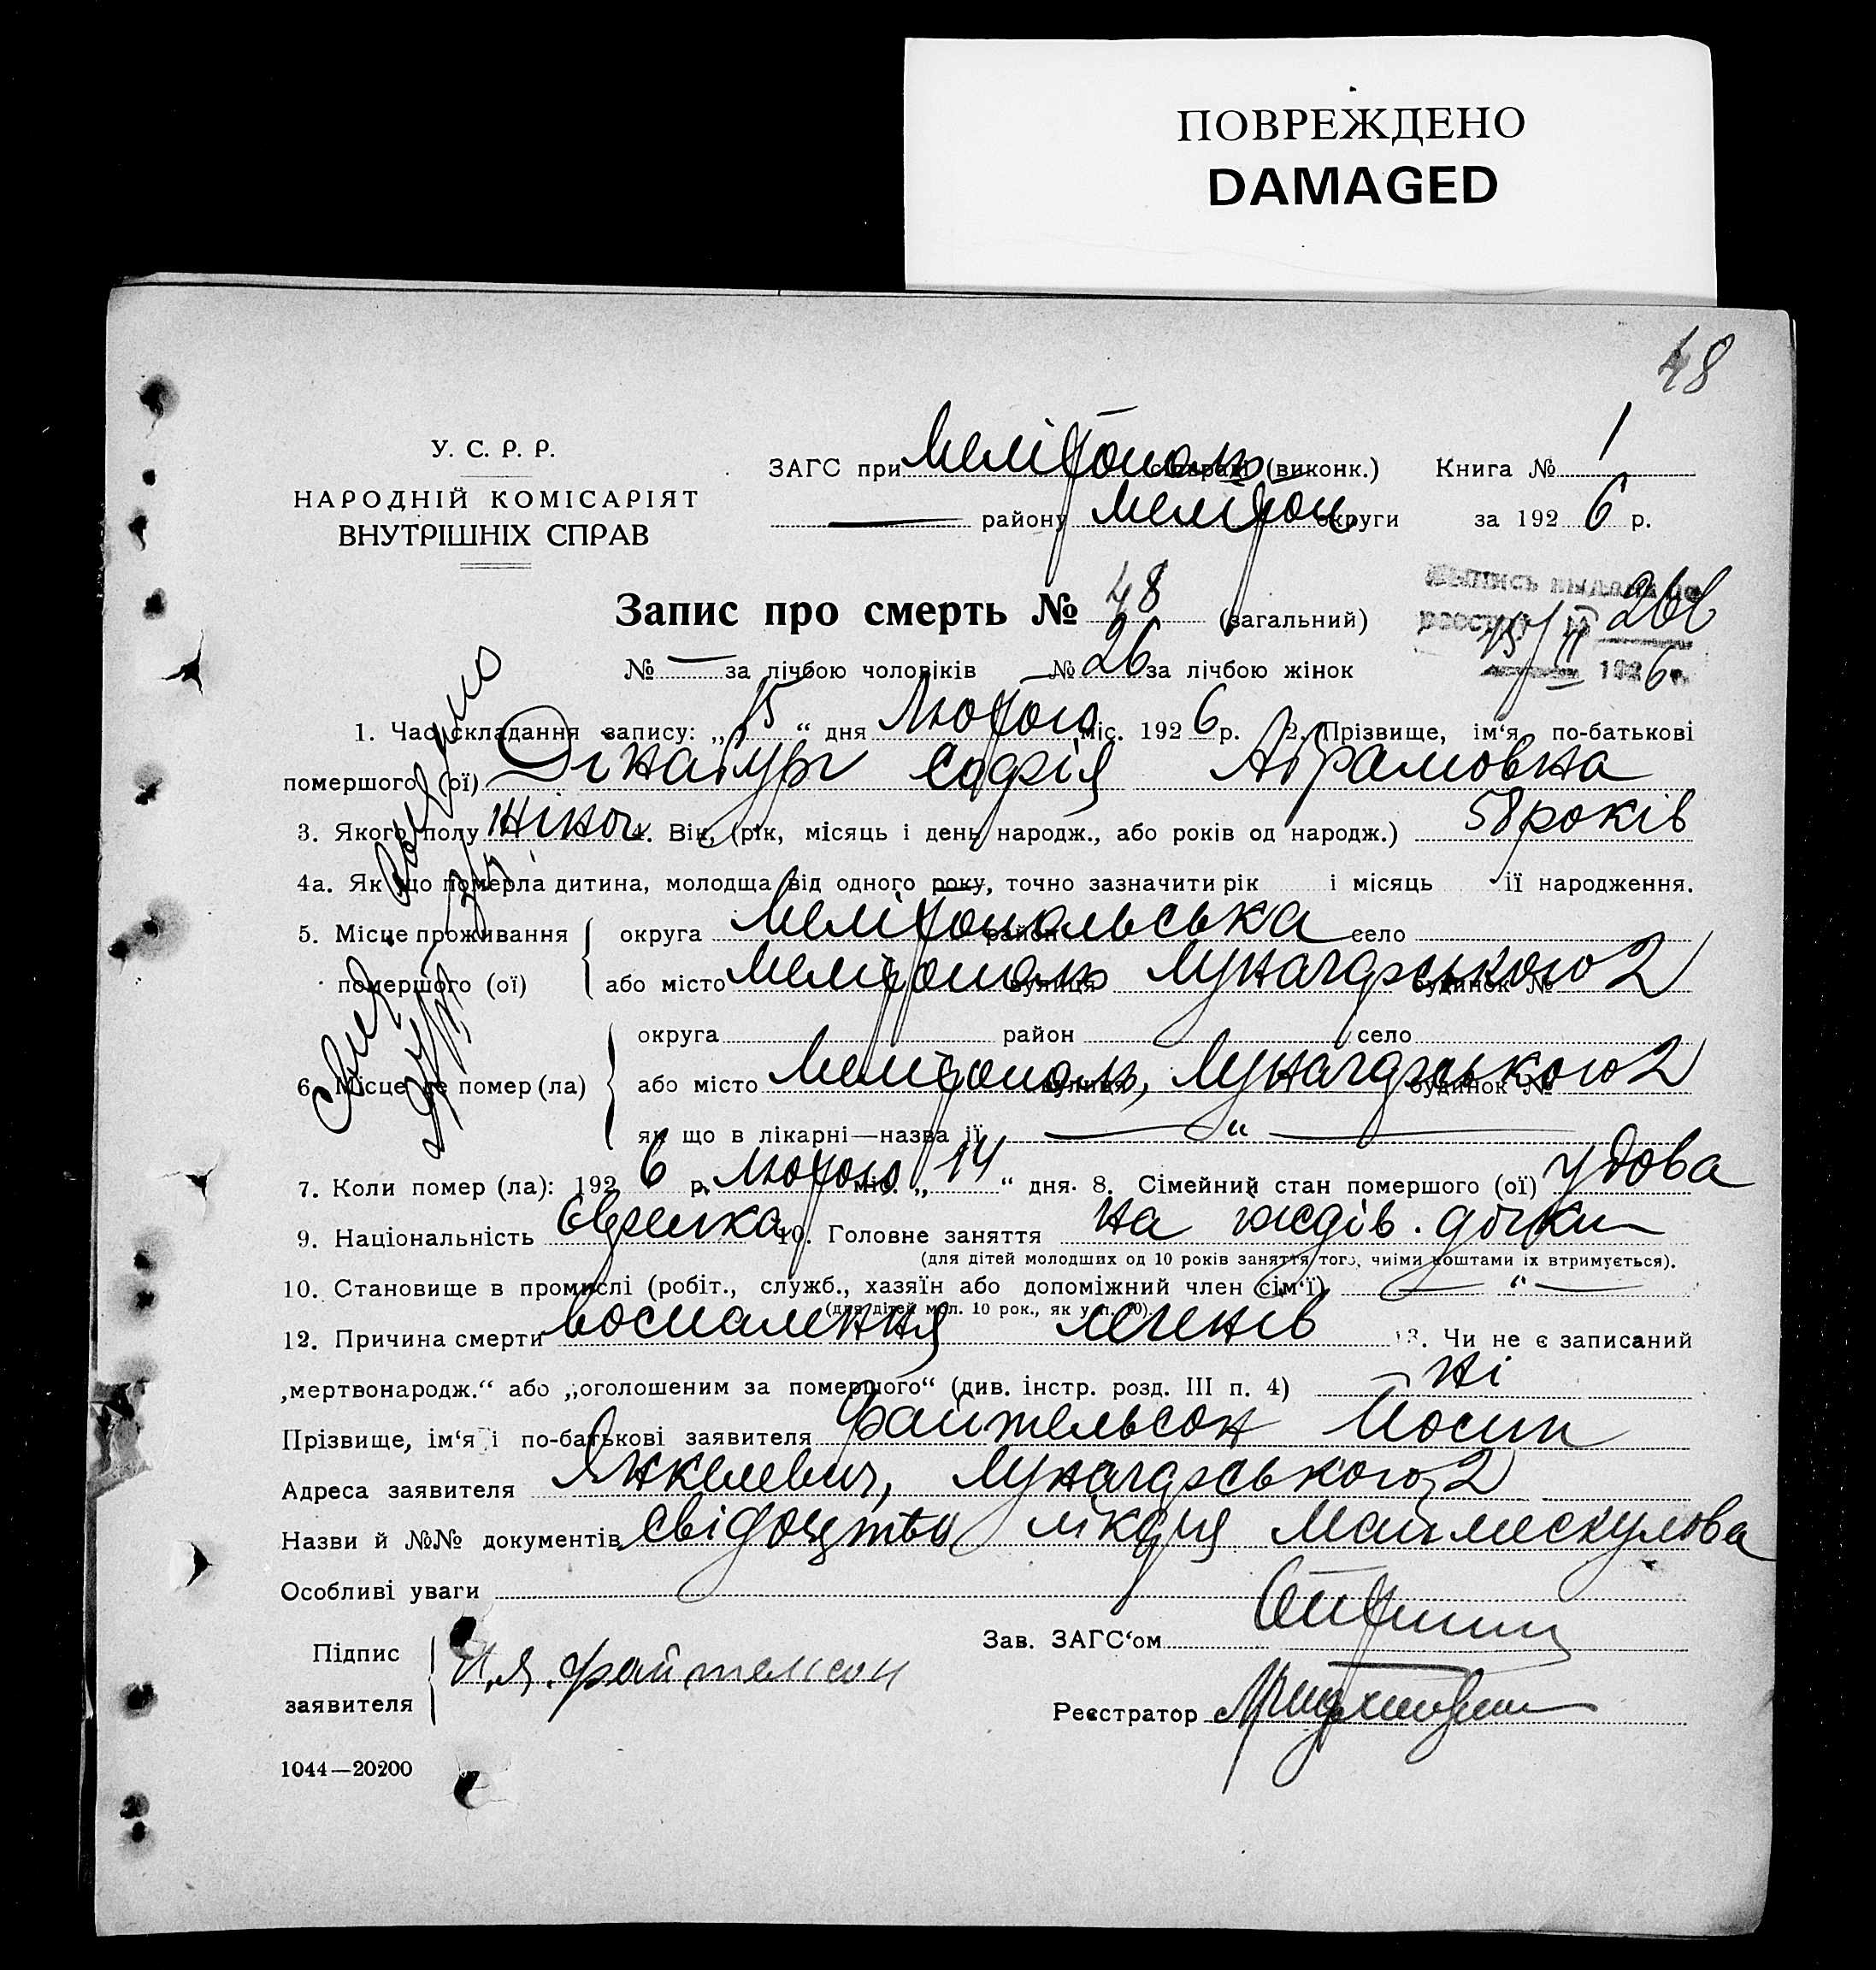 ПОВРЕЖДЕНО
DAMAGED
48
У. С. Р. Р.
НАРОДНІЙ КОМІСАРІЯТ
ВНУТРІШНІХ СПРАВ
ЗАГС при Мелітополь сільраді (виконк.) Книга № 1
— району Мелітоп округи за 1926 р.
Запис про смерть № 48 (загальний)
№ — за лічбою чоловіків № 26 за лічбою жінок
Выпись выдана по
15/II 1926 г.
1. Час складання запису: „15“ дня Лютого міс. 1926 р. 2. Прізвище, ім'я, по-батькові
помершого (ої) Софія Абрамовна
3. Якого полу жіноч 4. Вік, (рік, місяць і день народж., або років од народж.) 58 років
4а. Як що померла дитина, молодща від одного року, точно зазначити рік і місяць її народження.
5. Місце проживання помершого (ої) { округа Мелітопольська район село
або місто Мелітополь вулиця Луначарського будинок № 2
6. Місце де помер (ла) { округа район село
або місто Мелітополь, вулиця Луначарського будинок № 2
як що в лікарні—назва її — „ —
7. Коли помер (ла): 1926 р. Лютого міс. „14“ дня. 8. Сімейний стан помершого (ої) удова
9. Національність Єврейка 10. Головне заняття на іждів. дочки
(для дітей молодших од 10 років заняття того, чиїми коштами їх втримується).
10. Становище в промислі (робіт., служб., хазяїн або допоміжний член сім'ї) — „ —
(для дітей мол. 10 рок., як у п. 10).
12. Причина смерти воспалення легенів 13. Чи не є записаний
„мертвонародж.“ або „оголошеним за помершого“ (див. інстр. розд. III п. 4) — ні
Прізвище, ім'я і по-батькові заявителя Файтельсон Йосип
Адреса заявителя Янкелевич, Луначарського 2
Назви й №№ документів свідоцтво лікаря
Особливі уваги
Підпис заявителя { И. Я. Файтельсон
Зав. ЗАГС'ом
Реєстратор
1044—20200